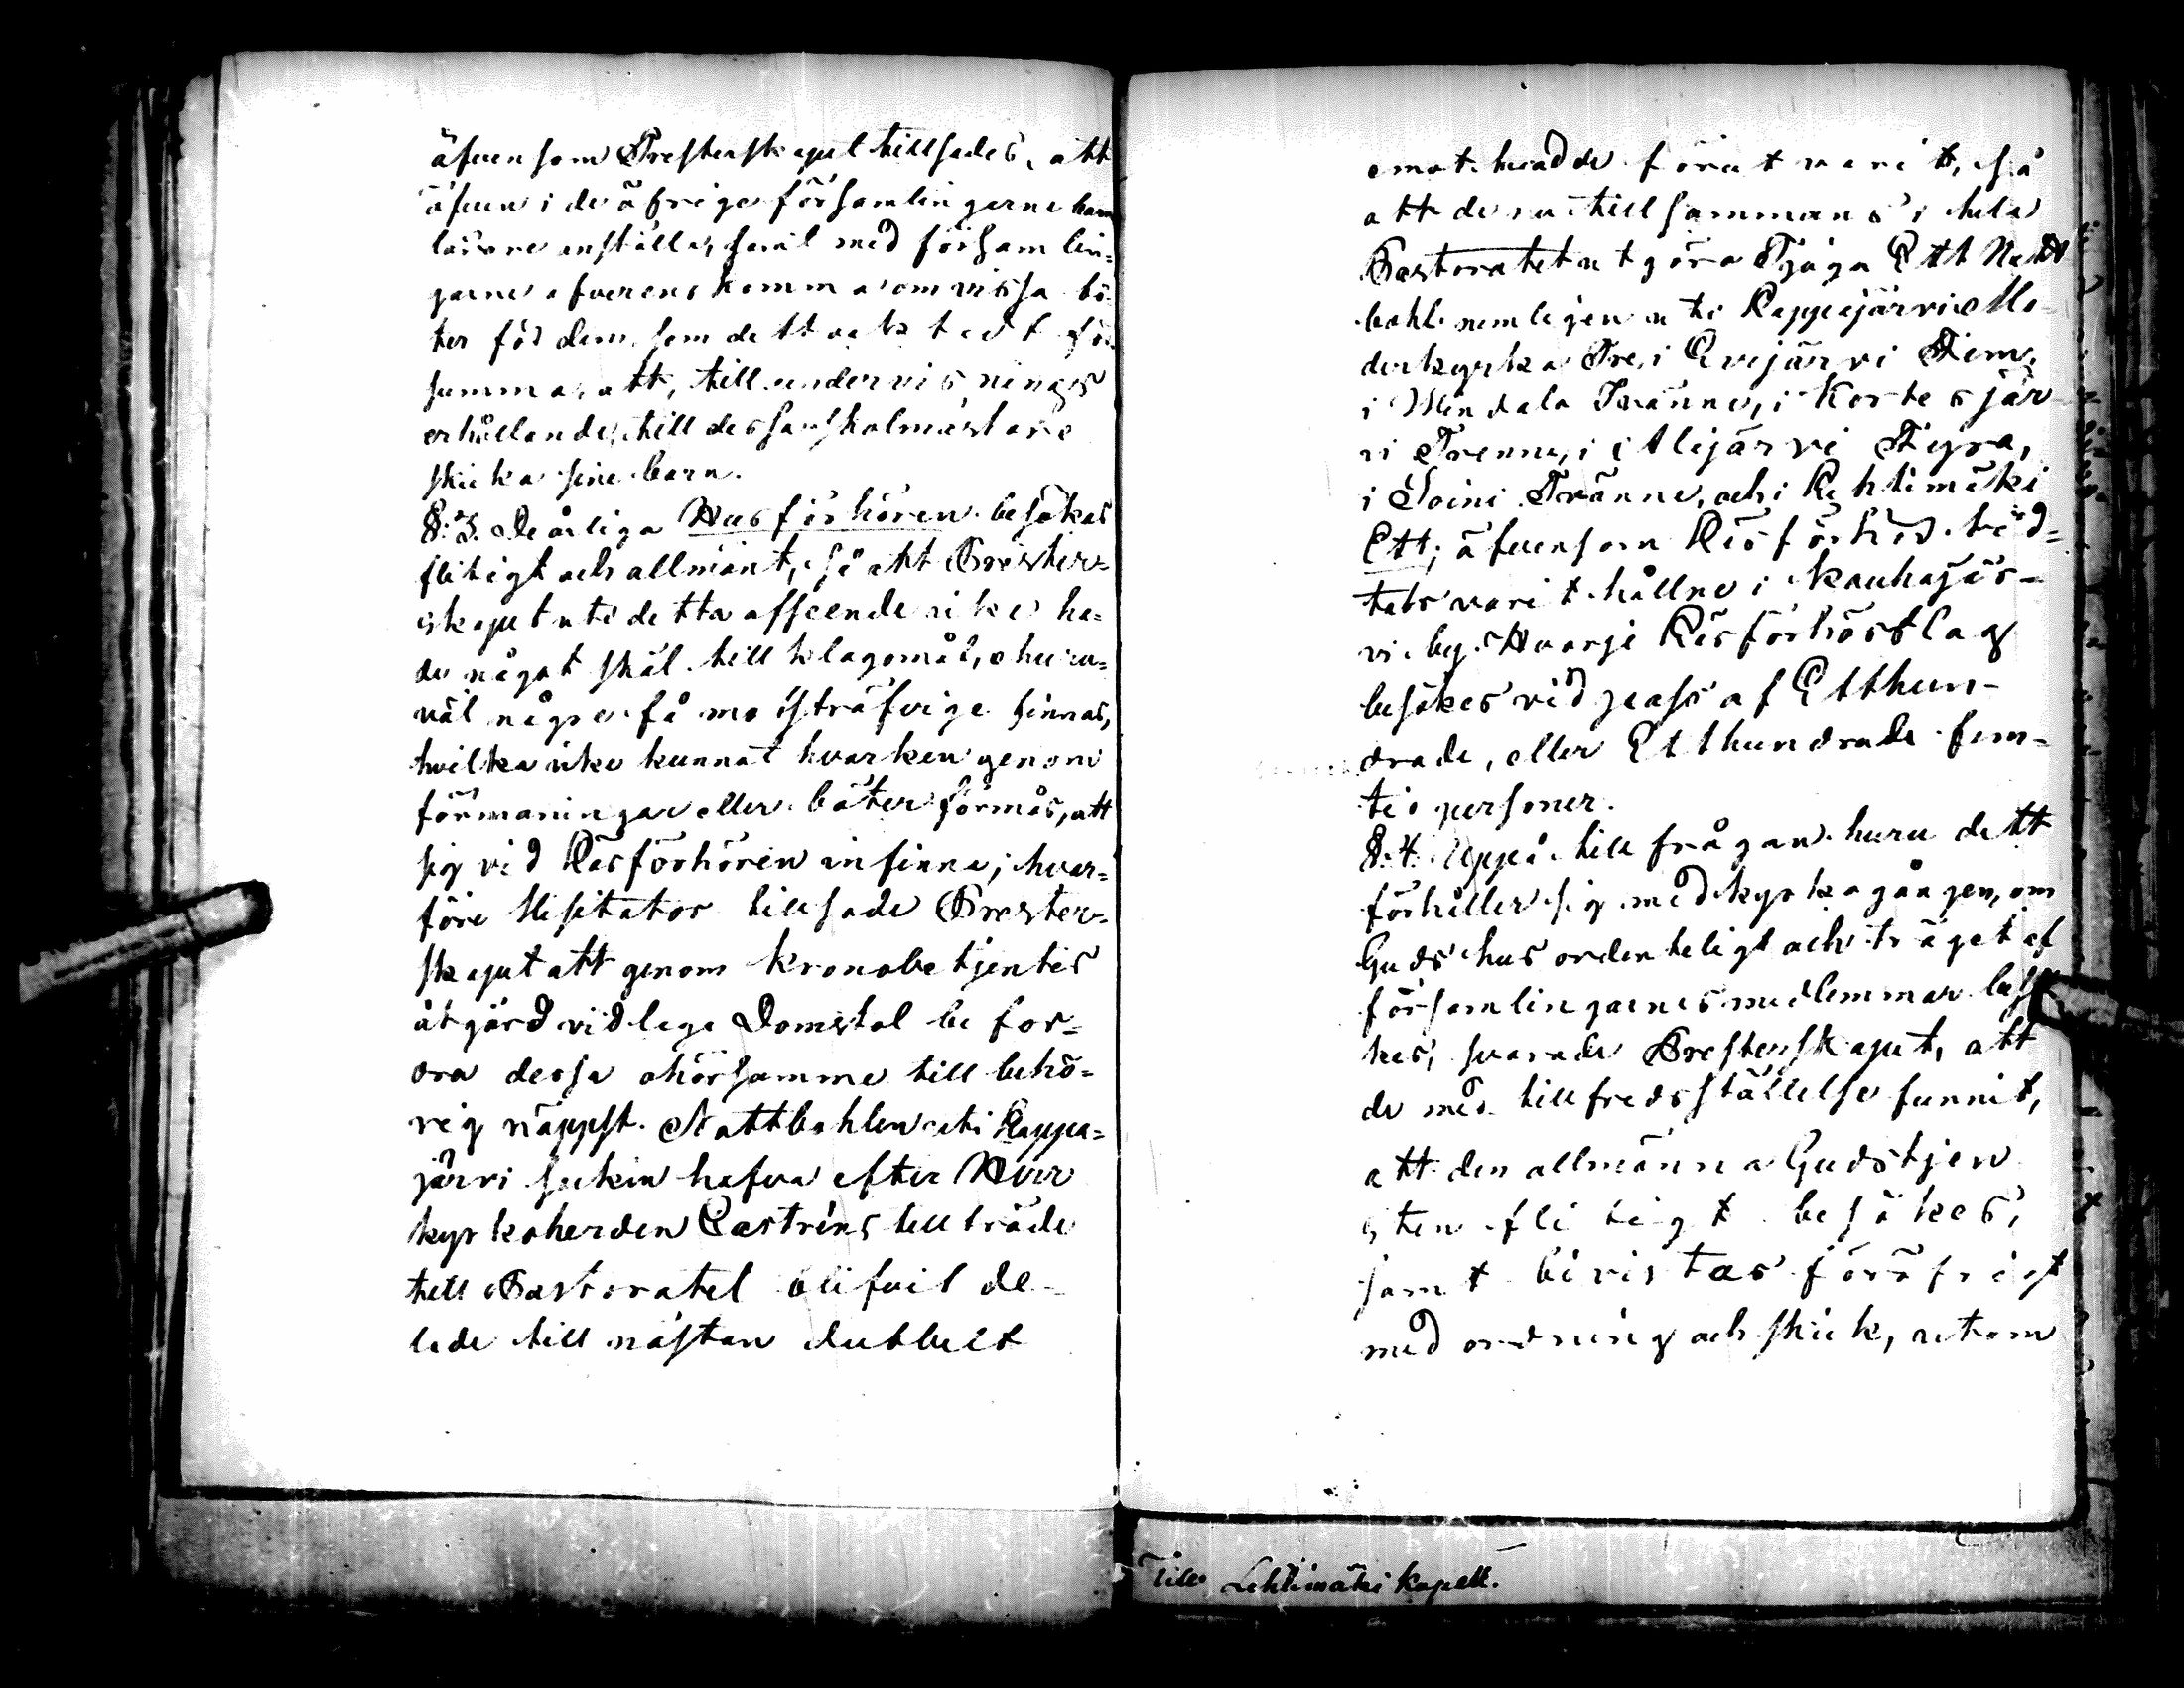 äfvensom Presterskapet tillsades, att
äfven i de öfrige församlingarne barn
lärare anställa, samt med församlin-
garne öfverenskomma om vissa bö-
ter för dem, som dett oaktadt för-
summa, att, till undervisnings
erhållande, till dessa skolmästare
skicka sine barn.
§: 3. De årliga Husförhören besökas
flitigt och allmänt, så att Prester-
skapet uti detta afseende icke ha-
de något skäl till klagomål, ehuru-
väl någre få motsträfvige finnas,
hvilka icke kunnat hvarken genom
förmaningar eller böter förmås, att
sig vid Läsförhören infinna; hvar-
före Visitator tillsade Prester-
skapet att genom kronobetjentes
åtgärd vid laga Domstol befor-
dra dessa ohörsamme till behö-
rig näpst. Nattbohlen uti Lappa-
järvi Socken hafva efter Herr
kyrkoherden Castréns tillträde
till Pastoratet blifvit de-
lade till nästan dubbelt
emot hvad de förut varit, så
att de nu tillsammans i hela
Pastoratet utgöra Tjugu Ett Natt
bohl nemligen uti Lappajärvi Mo-
derkyrka Tre, i Evijärvi Fem,
i Vindala Tvänne, i Kortesjär-
vi Trenne, i Alijärvi Fyra,
i Soini Tvänne, och i Lehtimäki
Ett; äfvensom Läsförhör
varit hållne i Kauhajär-
vi by. Hvarje Läsförhörslag
besökes vid pass af Etthun-
drade, eller Etthundrade fem-
tio personer.
§: 4. Uppå tillfrågan huru dett
förhåller sig med kyrkogången, om
Guds hus ordenteligt och träget af
församlingarnes medlemmar besö-
kes, svarade Presterskapet, att
de med tillfredsställelse funnit,
att den allmänna Gudstjen
sten flitigt besökes,
samt bivistas föröfrigt
med ordning och skick, utom
Till Lehtimäki Kapell.